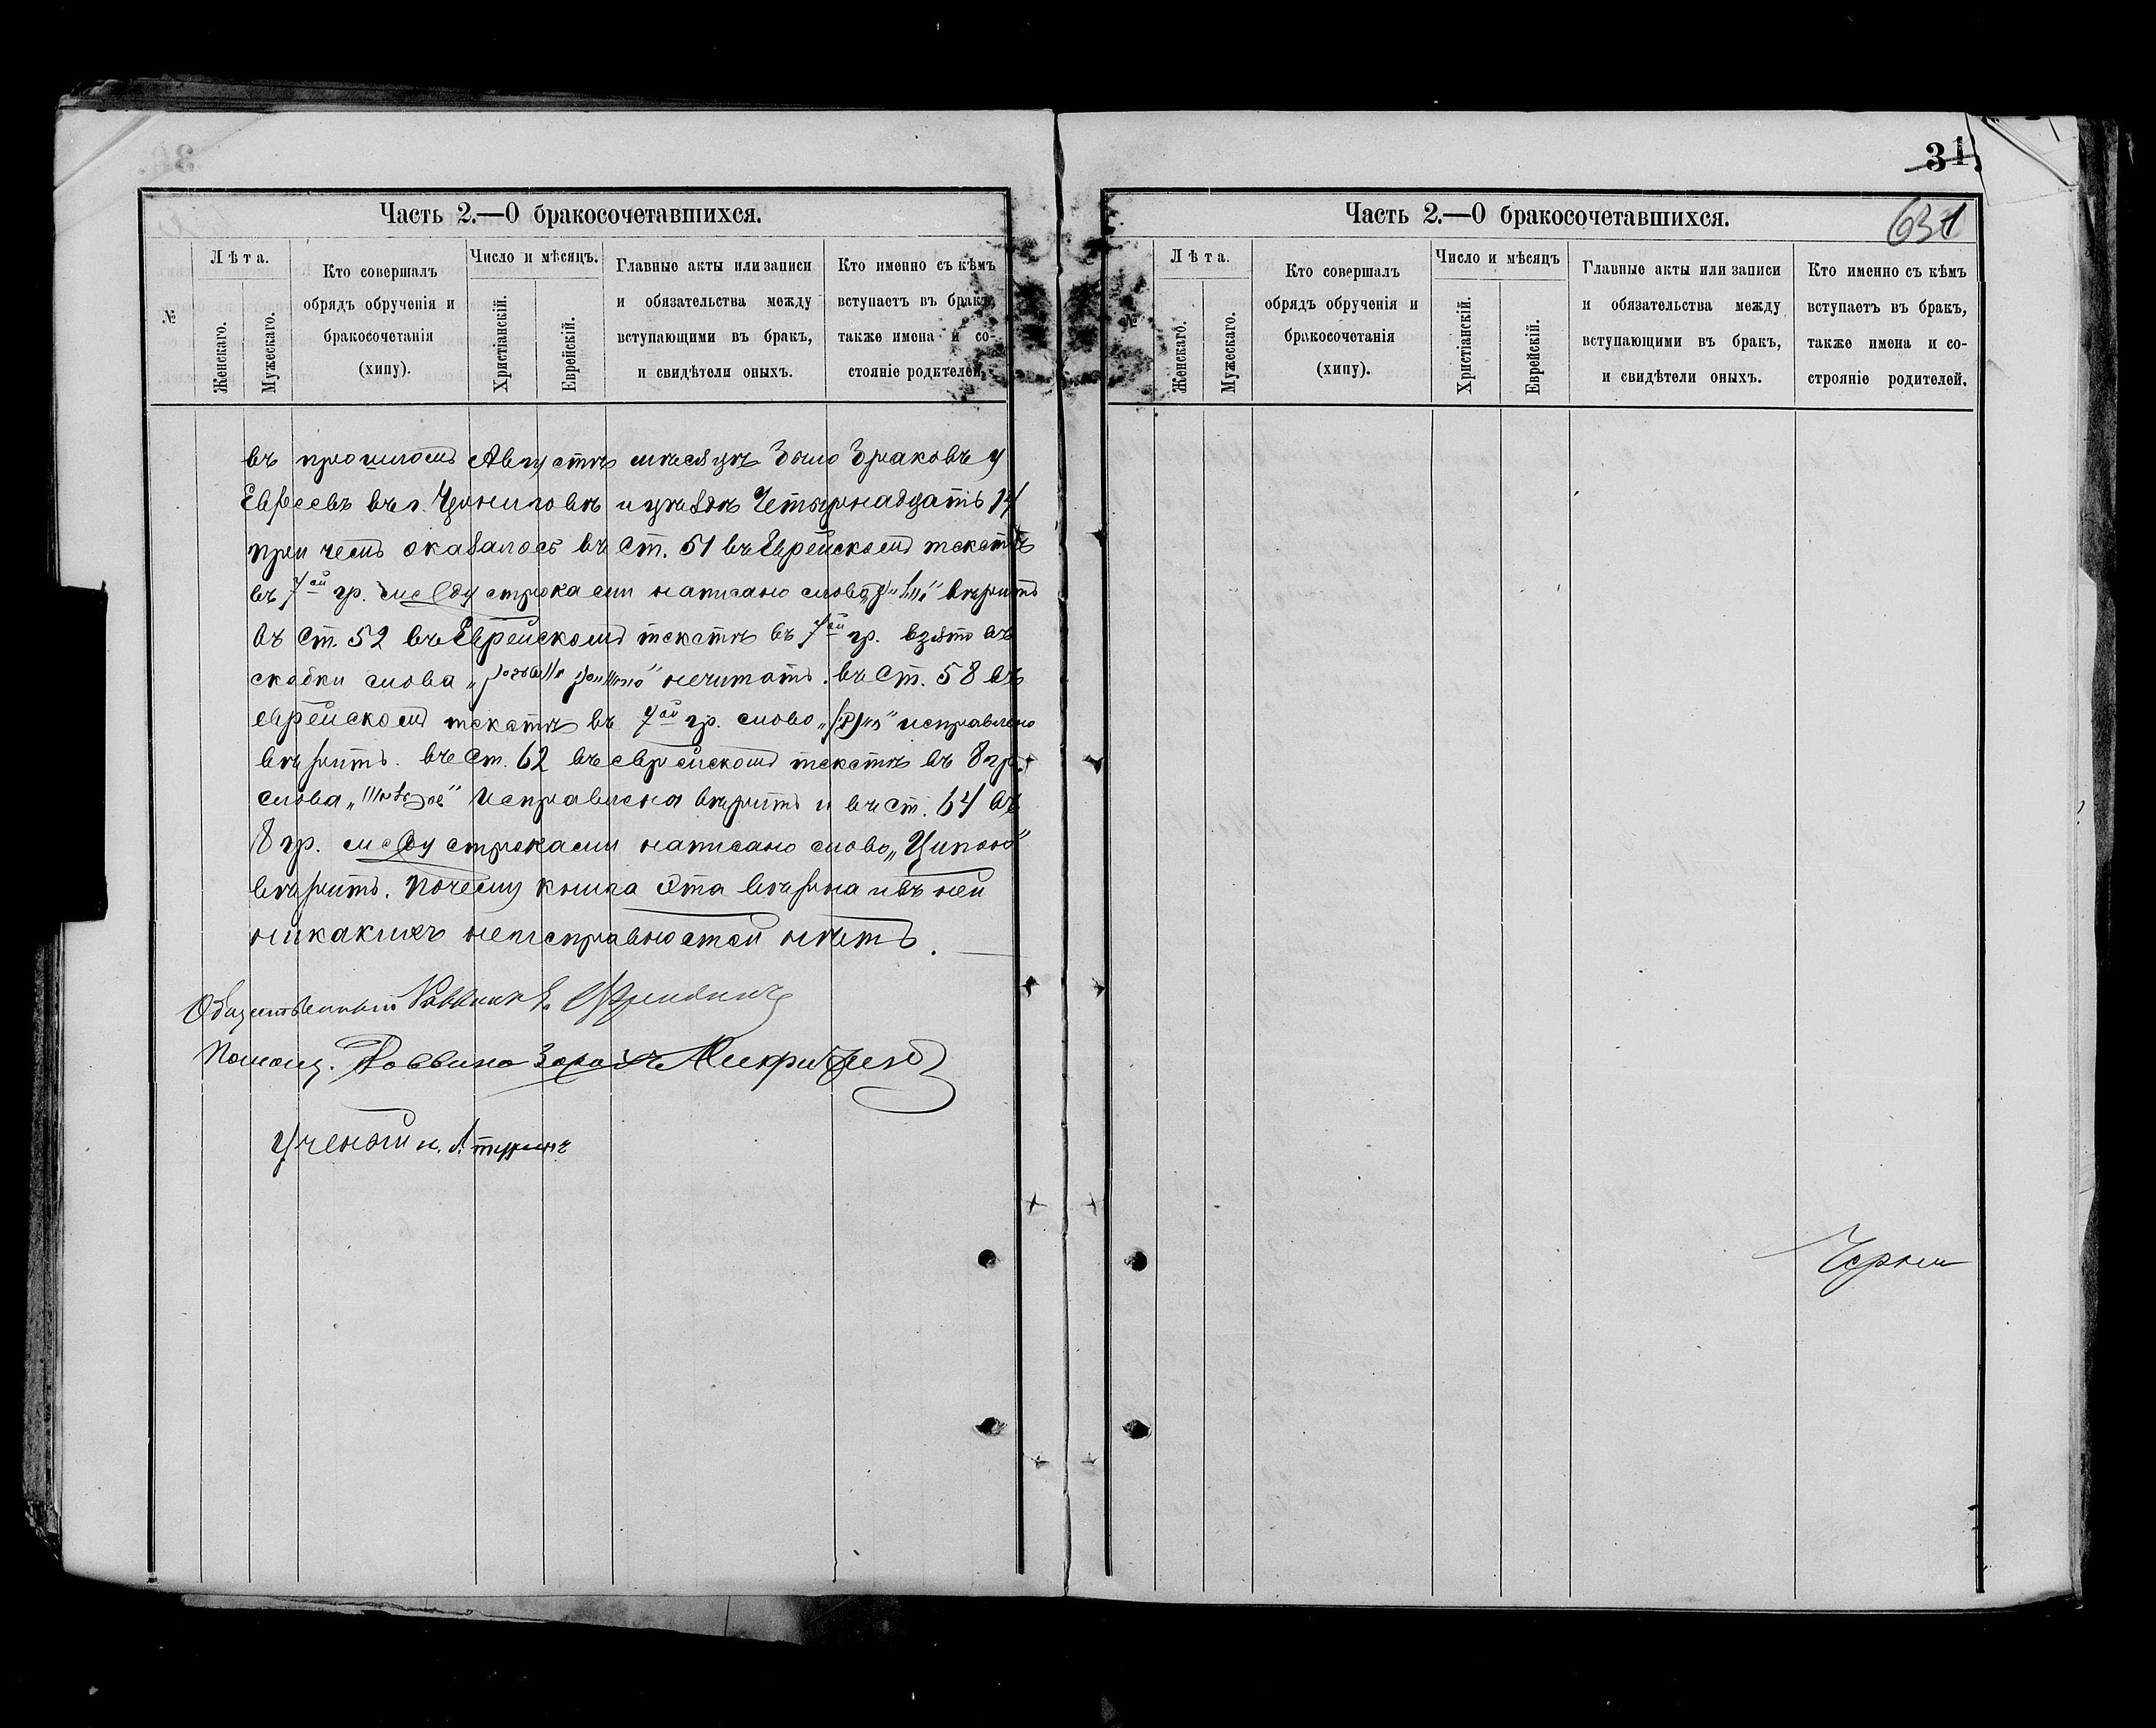 31.
Часть 2.—О бракосочетавшихся.
№
Лѣта.
Женскаго.
Мужескаго.
Кто совершалъ
обрядъ обрученія и
бракосочетанія
(хипу).
Число и мѣсяцъ.
Христіанскій.
Еврейскій.
Главные акты или записи
и обязательства между
вступающими въ бракъ,
и свидѣтели оныхъ.
Кто именно съ кѣмъ
вступаетъ въ бракъ,
также имена и со-
стояніе родителей.
въ прошломъ Августѣ мѣсяцѣ было браковъ у
Евреевъ въ г. Черниговѣ и уѣздѣ Четырнадцать 14
при чемъ оказалось въ ст. 51 въ Еврейскомъ текстѣ
въ 7ой гр. между строками написано слова вѣрить
въ ст. 52 въ Еврейскомъ текстѣ въ 7ой гр. взято въ
скобки слова нечитать. въ ст. 58 въ
еврейскомъ текстѣ въ 7ой гр. слово исправлено
вѣрить. въ ст. 62 въ еврейскомъ текстѣ въ 8 гр.
слова исправлена вѣрить и въ ст. 64 въ
8 гр. между строками написано слово „Ципою“
вѣрить. Почему книга эта вѣрна и въ ней
никакихъ неисправностей нѣтъ.
Общественный Раввинъ
Помощ. Раввина
Ученый
Часть 2.—О бракосочетавшихся.
631
№
Лѣта.
Женскаго.
Мужескаго.
Кто совершалъ
обрядъ обрученія и
бракосочетанія
(хипу).
Число и мѣсяцъ
Христіанскій.
Еврейскій.
Главные акты или записи
и обязательства между
вступающими въ бракъ,
и свидѣтели оныхъ.
Кто именно съ кѣмъ
вступаетъ въ бракъ,
также имена и со-
строяніе родителей.